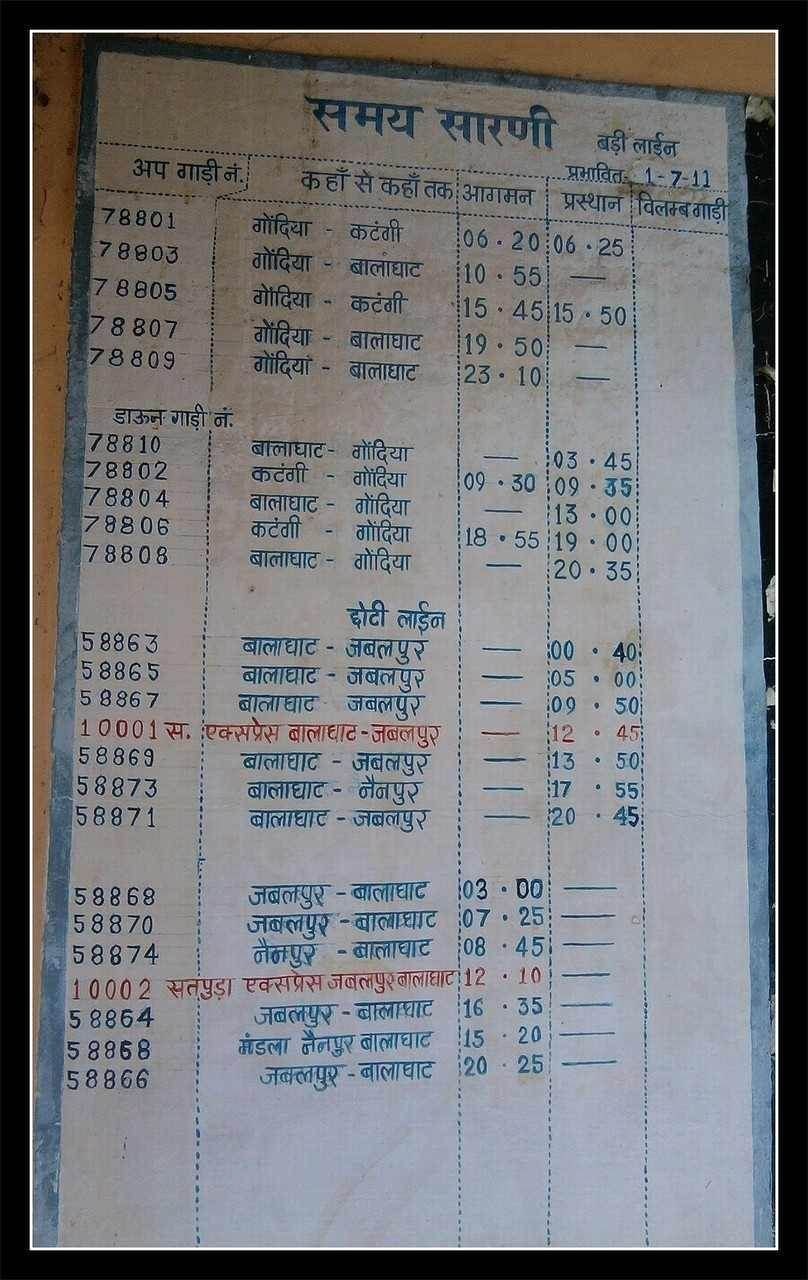 समय सारणी
बड़ी लाईन
प्रभावित- 1-7-11
अप गाड़ी नं. कहाँ से कहाँ तक आगमन प्रस्थान विलम्ब गाड़ी
78801 गोंदिया - कटंगी 06.20 06.25
78803 गोंदिया - बालाघाट 10.55 —
78805 गोंदिया - कटंगी 15.45 15.50
78807 गोंदिया - बालाघाट 19.50 —
78809 गोंदिया - बालाघाट 23.10 —
डाऊन गाड़ी नं.
78810 बालाघाट - गोंदिया — 03.45
78802 कटंगी - गोंदिया 09.30 09.35
78804 बालाघाट - गोंदिया — 13.00
78806 कटंगी - गोंदिया 18.55 19.00
78808 बालाघाट - गोंदिया — 20.35
छोटी लाईन
58863 बालाघाट - जबलपुर — 00.40
58865 बालाघाट - जबलपुर — 05.00
58867 बालाघाट जबलपुर — 09.50
10001 स. एक्सप्रेस बालाघाट-जबलपुर — 12.45
58869 बालाघाट - जबलपुर — 13.50
58873 बालाघाट - नैनपुर — 17.55
58871 बालाघाट - जबलपुर — 20.45
58868 जबलपुर - बालाघाट 03.00 —
58870 जबलपुर - बालाघाट 07.25 —
58874 नैनपुर - बालाघाट 08.45 —
10002 सतपुड़ा एक्सप्रेस जबलपुर बालाघाट 12.10 —
58864 जबलपुर - बालाघाट 16.35 —
58868 मंडला नैनपुर बालाघाट 15.20 —
58866 जबलपुर - बालाघाट 20.25 —